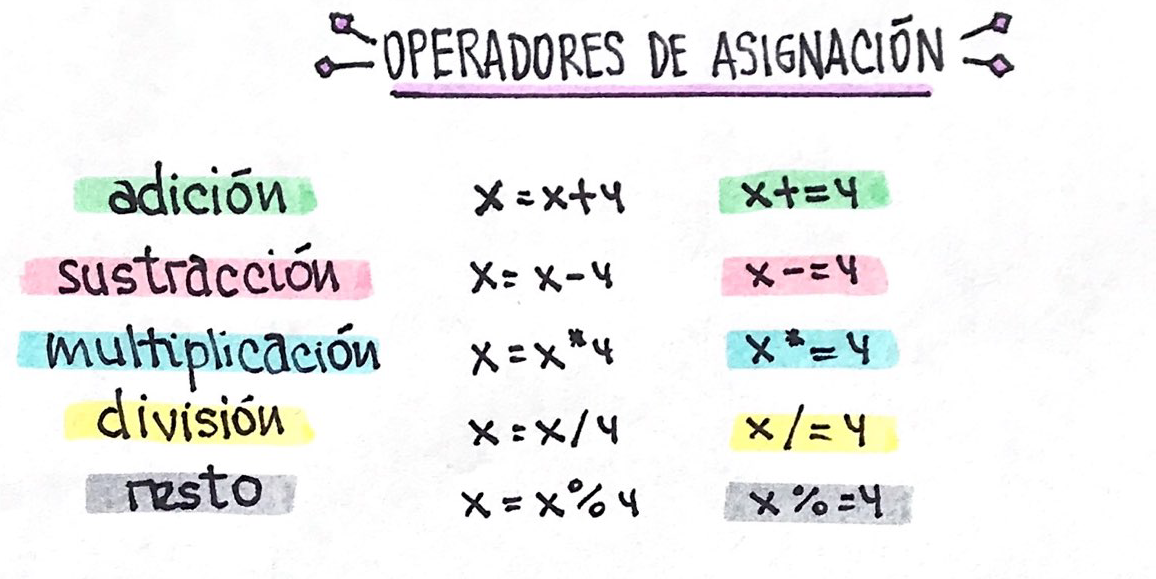 OPERADORES DE ASIGNACIÓN
adición x=x+4 x+=4
sustracción x=x-4 x-=4
multiplicación x=x*4 x*=4
división x=x/4 x/=4
resto x=x%4 x%=4